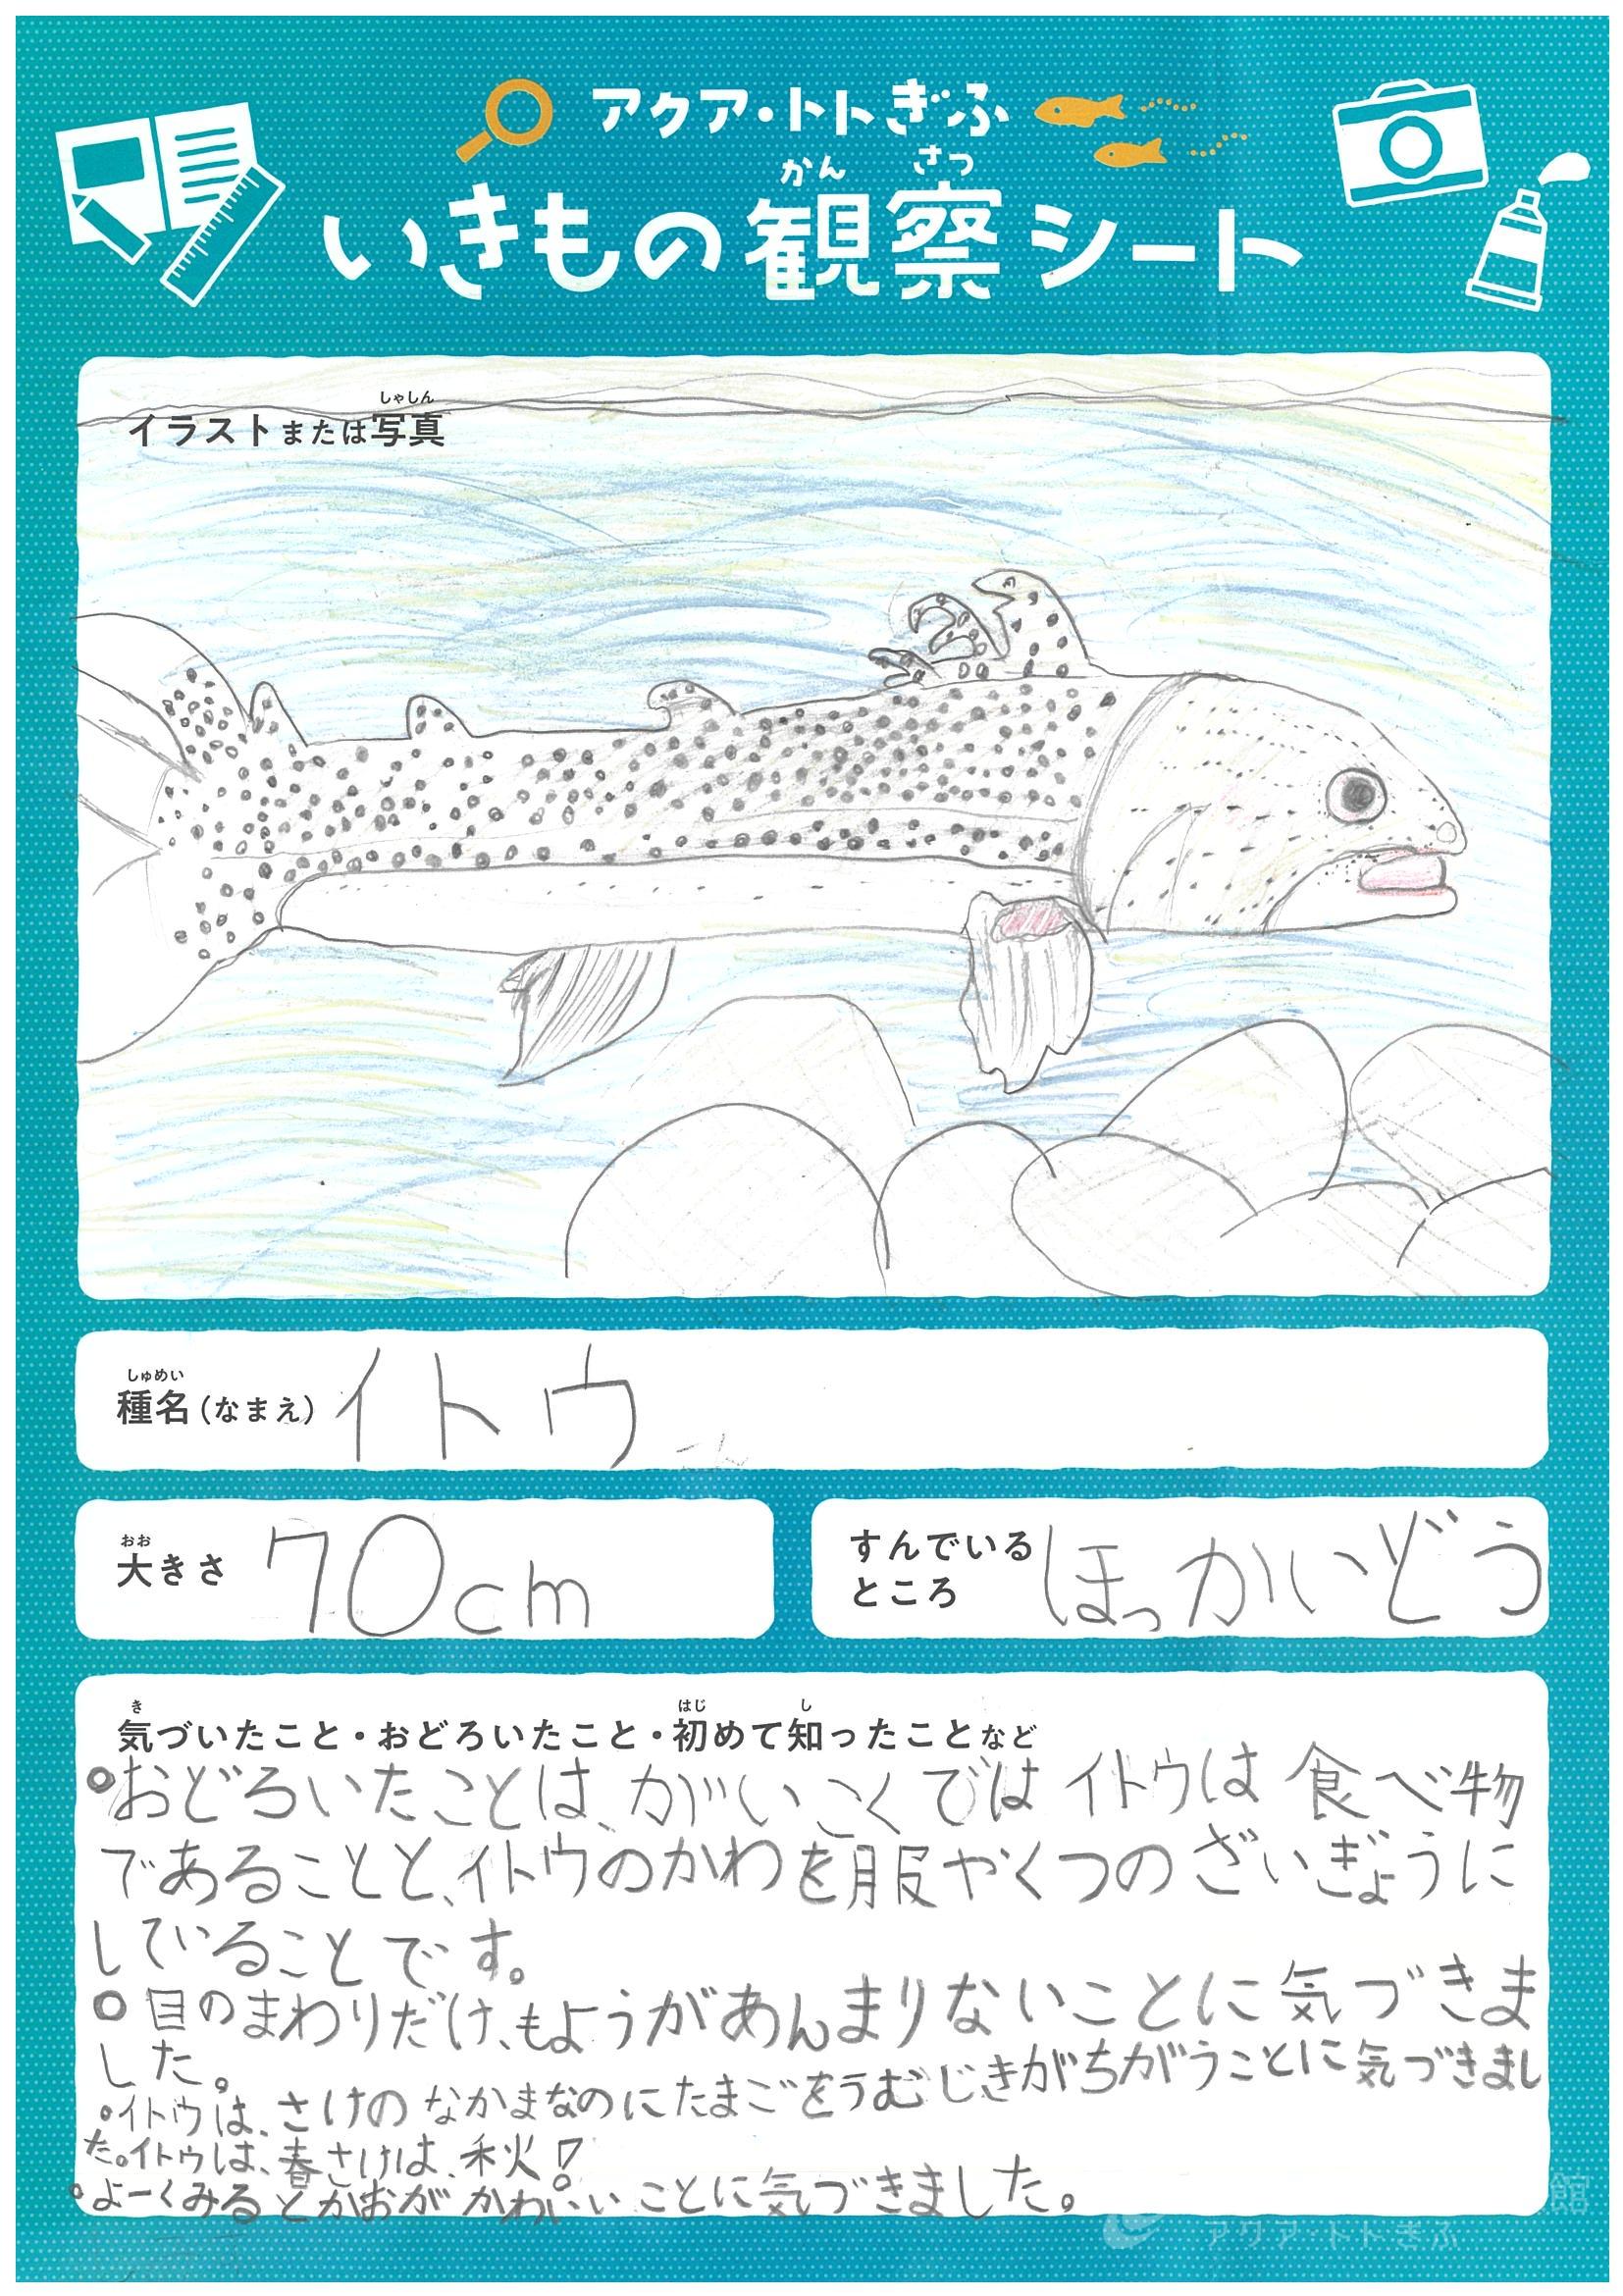 アクア・トトぎふ
かん さつ
いきもの観察シート
しゃしん
イラストまたは写真
しゅめい
種名(なまえ) イトウ
おお
大きさ 70cm
すんでいる
ところ
ほっかいどう
き はじ し
気づいたこと・おどろいたこと・初めて知ったことなど
おどろいたことは、がいこくではイトウは食べ物
であることと、イトウのかわを服やくつのざいぎょうに
していることです。
○目のまわりだけ、もようがあんまりないことに気づきま
した。
○イトウは、さけのなかまなのにたまごをうむじきがちがうことに気づきまし
た。イトウは、春さけは、秋!
○よーくみるとかおがかわいいことに気づきました。
館
アクア・トトぎふ